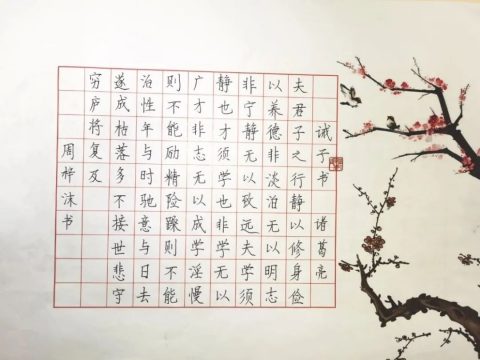 诫子书 诸葛亮
夫君子之行静以修身俭
以养德非淡泊无以明志
非宁静无以致远夫学须
静也才须学也非学无以
广才非志无以成学淫慢
则不能励精险躁则不能
泊性年与时驰意与日去
遂成枯落多不接世悲守
穷庐将复及
周梓沫书